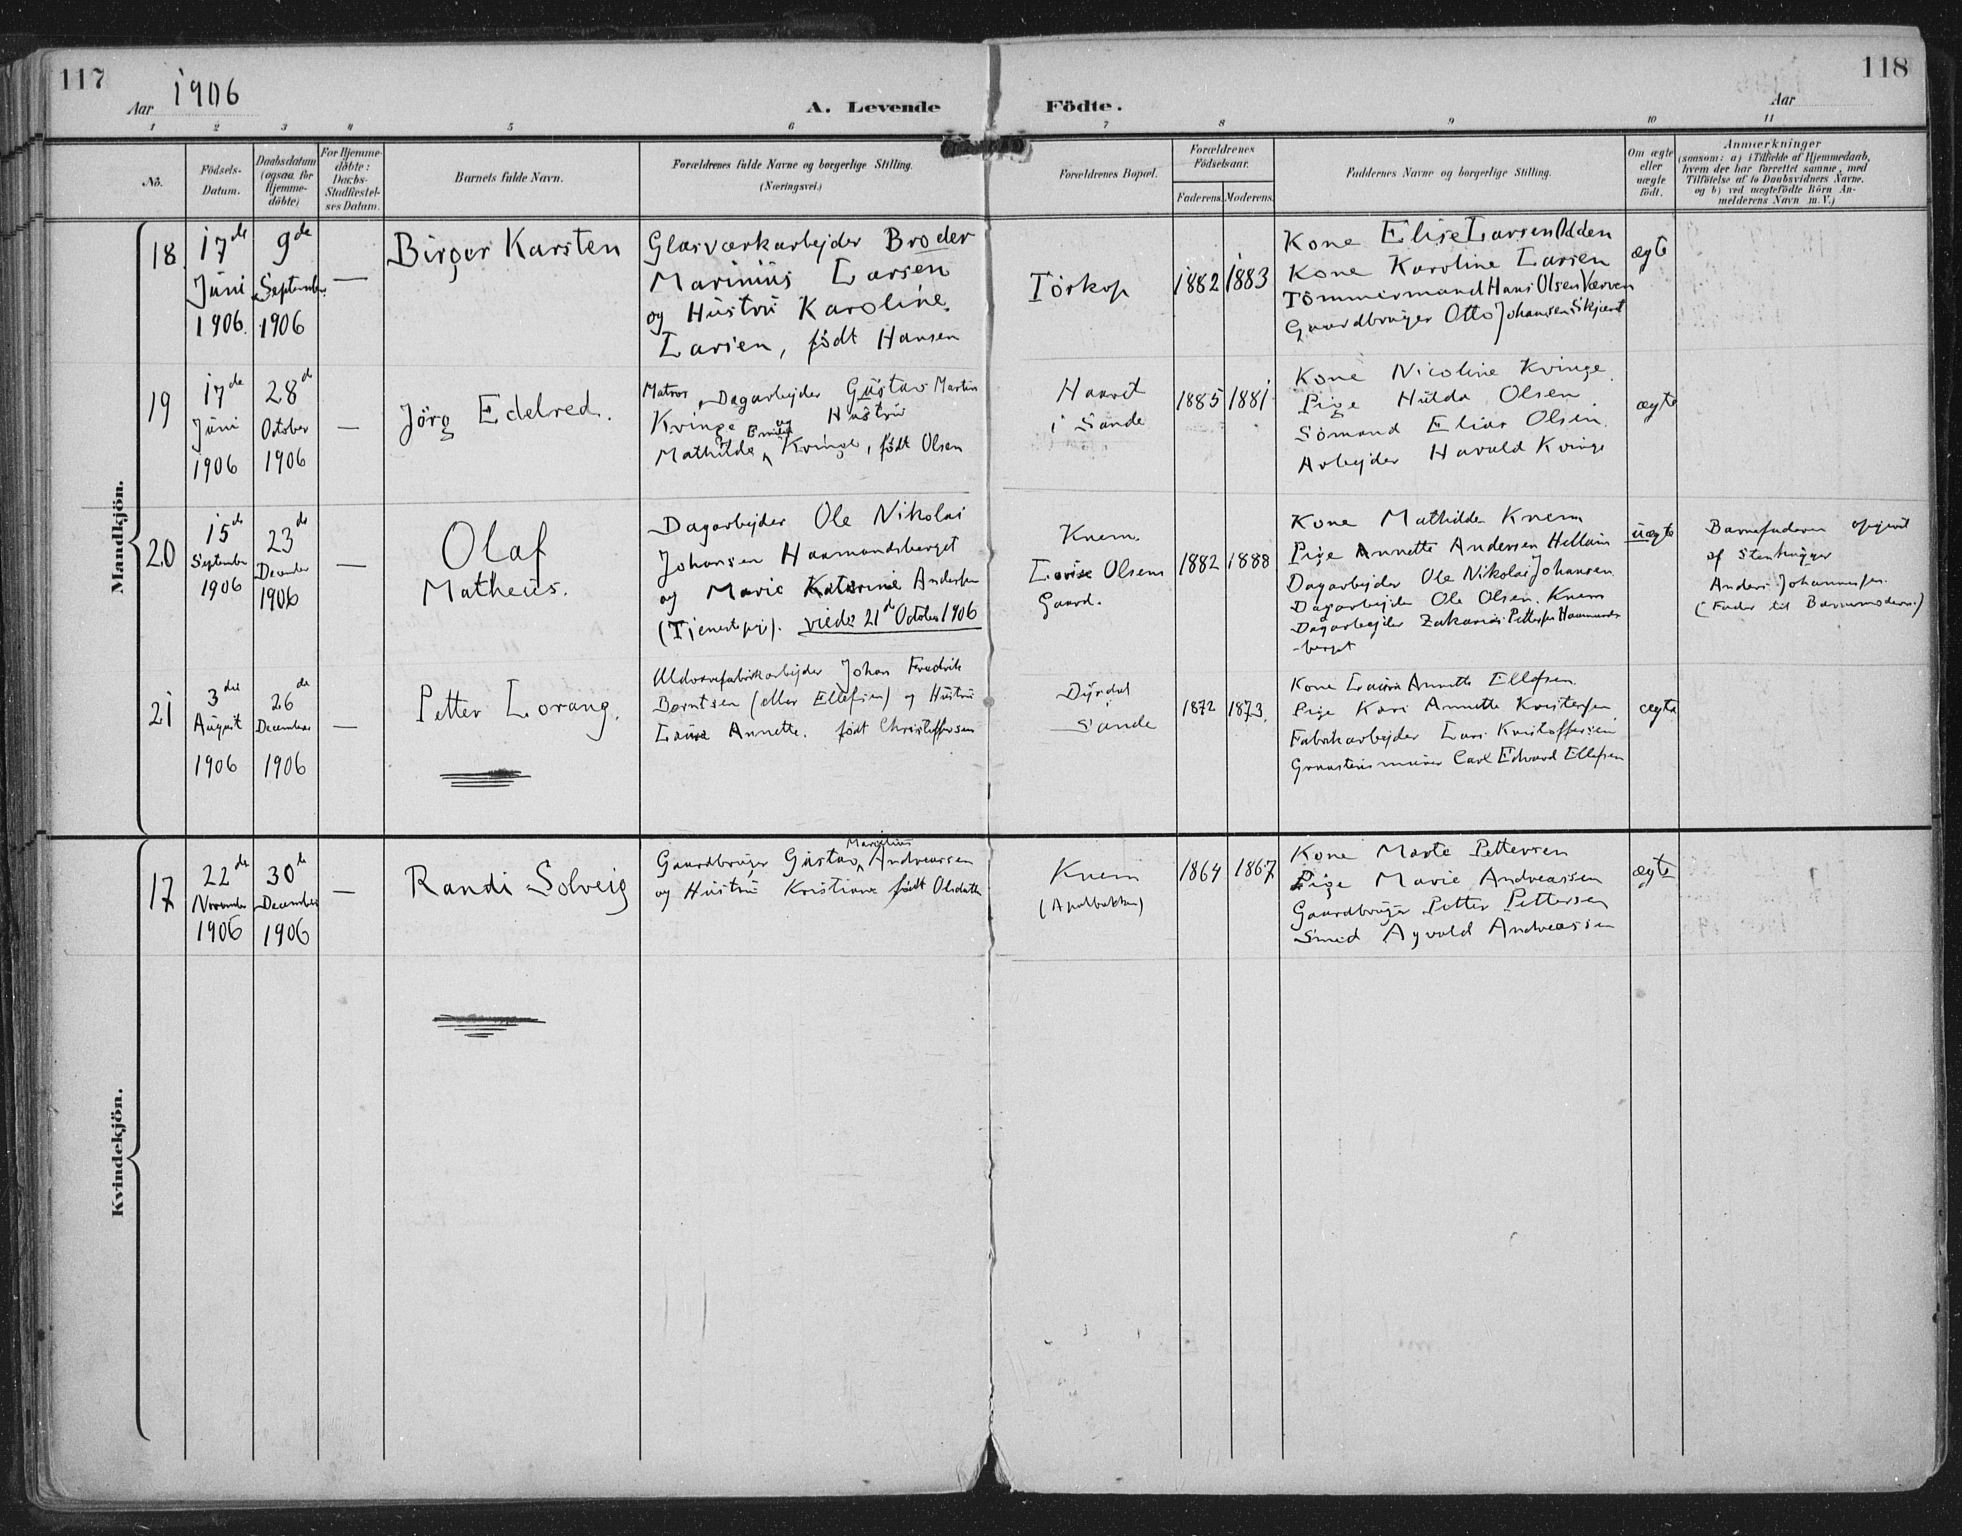 117
Aar 1906
A. Levende Födte.
118
Aar
1 2 3 4 5 6 7 8 9 10 11
No.
Födsels-
Datum.
Daabsdatum
(ogsaa for
Hjemme-
döbte)
For Hjemme-
döbte:
Daabs-
Stadfæstel-
ses Datum.
Barnets fulde Navn.
Forældrenes fulde Navne og borgerlige Stilling.
(Næringsvei.)
Forældrenes Bopæl.
Forældrenes
Födselsaar.
Faderens. Moderens.
Faddernes Navne og borgerlige Stilling.
Om ægte
eller
uægte
födt.
Anmærkninger
(saasom: a) i Tilfælde af Hjemmedaab,
hvem der har forrettet samme, med
Tilföielse af to Daabsvidners Navne,
og b) ved uægtefödte Börn An-
melderens Navn m. V.)
Mandkjön.
18
17de
Juni
1906.
9de
September
1906
—
Birger Karsten
Glasværkarbejder Broder
Marinius Larsen
og Hustru Karoline
Larsen, født Hansen
Törkop
1882
1883
Kone Elise Larsen Odden
Kone Karoline Larsen
Tömmermand Hans Olsen Værven
Gaardbruger Otto Johansen Skjæret
ægte
19
17de
Juni
1906
28de
October
1906
—
Jörg Edelred.
Matros, Dagarbejder Gustav Martin
Kvinge og Hustru
Mathilde Emilie Kvinge, født Olsen
Haavet
i Sande
1885
1881
Kone Nicoline Kvinge.
Pige Hilda Olsen.
Sömand Elias Olsen.
Arbejder Harald Kvinge
ægte
20
15de
September
1906
23de
December
1906
—
Olaf
Matheus.
Dagarbejder Ole Nikolai
Johansen Haamandsberget
og Marie Katrine Andersen
(Tjenestepi). viede 21de October 1906
Knem.
Lovise Olsens
Gaard.
1882
1888
Kone Mathilde Knem
Pige Annette Andersen Hellam
Dagarbejder Ole Nikolai Johansen.
Dagarbejder Ole Olsen. Knem
Dagarbejder Zakarias Pettersen Haamands-
-berget
uægte
Barnefaderen opgivet
af Stenhugger
Anders Johannesen.
(Fader til Barnemoderen.)
21
3die
August
1906
26de
December
1906
—
Petter Lorang.
Uldvarefabrikarbejder Johan Fredrik
Berntsen (eller Ellefsen) og Hustru
Laura Annette. født Christoffersen
Dyrdal
Sande
1872
1873.
Kone Laura Annette Ellefsen.
Pige Kari Annette Kristensen
Fabrikarbejder Lars Kristoffersen
Graastensmurer Carl Edvard Ellefsen
ægte
Kvindekjön.
17
22de
November
1906
30de
December
1906
—
Randi Solveig
Gaardbruger Gustav Marcelius Andreassen
og Hustru Kristiane født Olsdatter
Knem
(Apalbakken)
1864
1867
Kone Marte Pettersen
Pige Marie Andreassen
Gaardbruger Petter Pettersen
Smed Agvald Andreassen
ægte